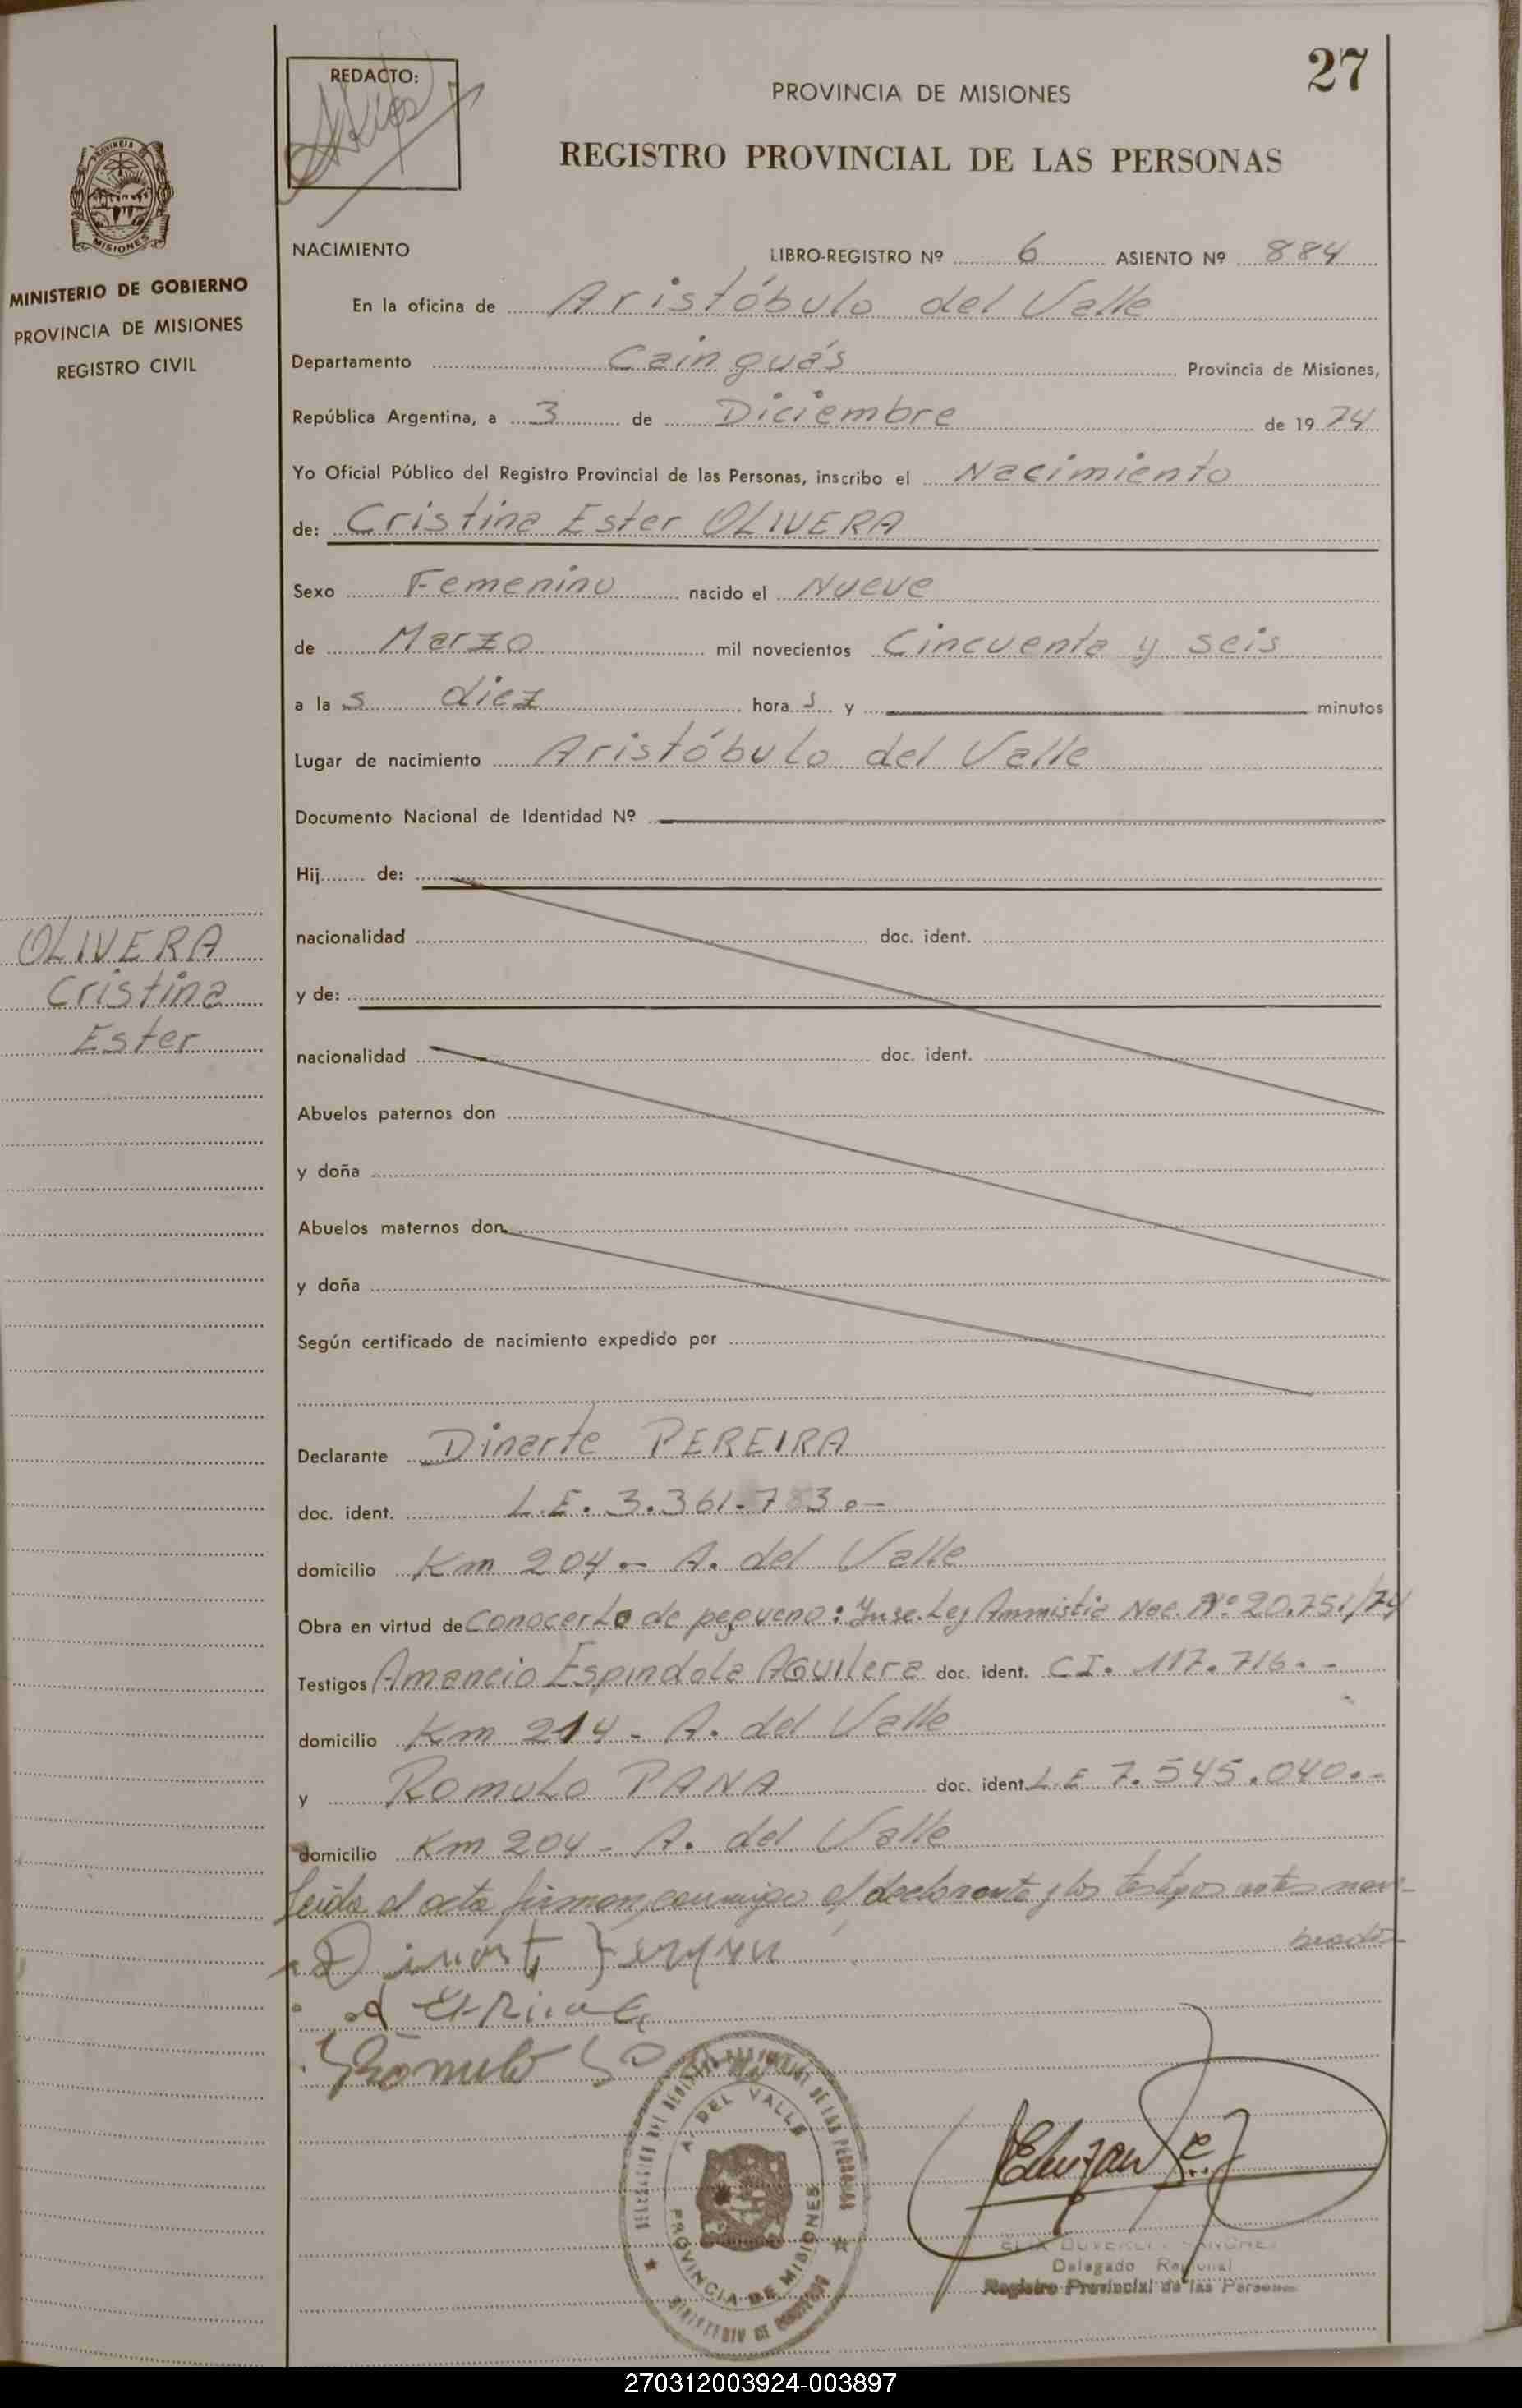 27
REDACTO:
PROVINCIA DE MISIONES
REGISTRO PROVINCIAL DE LAS PERSONAS
PROVINCIA DE
MISIONES
MINISTERIO DE GOBIERNO
PROVINCIA DE MISIONES
REGISTRO CIVIL
NACIMIENTO LIBRO-REGISTRO Nº 6 ASIENTO Nº 884
En la oficina de Aristóbulo del Valle
Departamento Cainguás Provincia de Misiones,
República Argentina, a 3 de Diciembre de 1974
Yo Oficial Público del Registro Provincial de las Personas, inscribo el Nacimiento
de: Cristina Ester OLIVERA
Sexo Femenino nacido el Nueve
de Marzo mil novecientos Cincuenta y seis
a las diez horas y minutos
Lugar de nacimiento Aristóbulo del Valle
Documento Nacional de Identidad Nº
Hij de:
OLIVERA
Cristina
Ester
nacionalidad doc. ident.
y de:
nacionalidad doc. ident.
Abuelos paternos don
y doña
Abuelos maternos don
y doña
Según certificado de nacimiento expedido por
Declarante Dinarte PEREIRA
doc. ident. L.E. 3.361.783.-
domicilio Km 204 - A. del Valle
Obra en virtud de Conocerlo de pequeno: Insc. Ley Ammistia Nac. Nº 20.751/74
Testigos Amancio Espindola Aguilera doc. ident. CI. 117.716.-
domicilio Km 214 - A. del Valle
y Romulo PANA doc. ident L.E 7.545.040.-
domicilio Km 204 - A. del Valle
Leida el acta firman conmigo el declarante y los testigos antes nom-
brados
Romulo
A. DEL VALLE
PROVINCIA DE MISIONES
Delegado Regional
Registro Provincial de las Personas
270312003924-003897